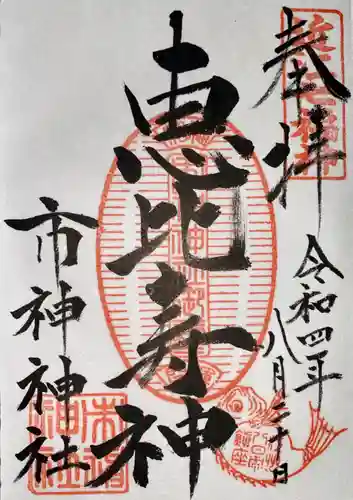 奉拝
令和四年
八月二十日
恵比寿神
市神神社